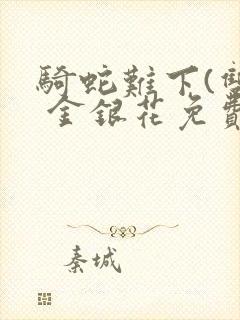 騎蛇難下(雙
金銀花免費
秦城